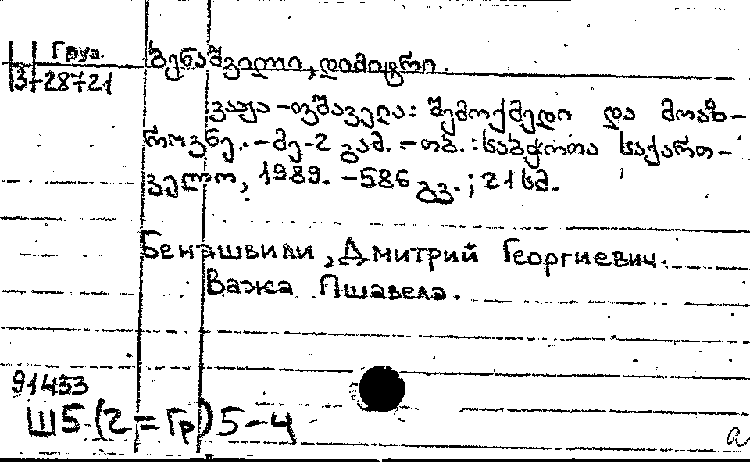 Груз.
3-28721
ბენაშვილი, დიმიტრი.
ვაჟა-ფშაველა: შემოქმედი და მოაზ-
როვნე. - მე-2 გამ. - თბ. : საბჭოთა საქართ-
ველო, 1989. - 586 გვ. ; 21 სმ.
Бенашвили, Дмитрий Георгиевич.
Важа Пшавела.
91433
Ш5(2=Гр)5-4
а